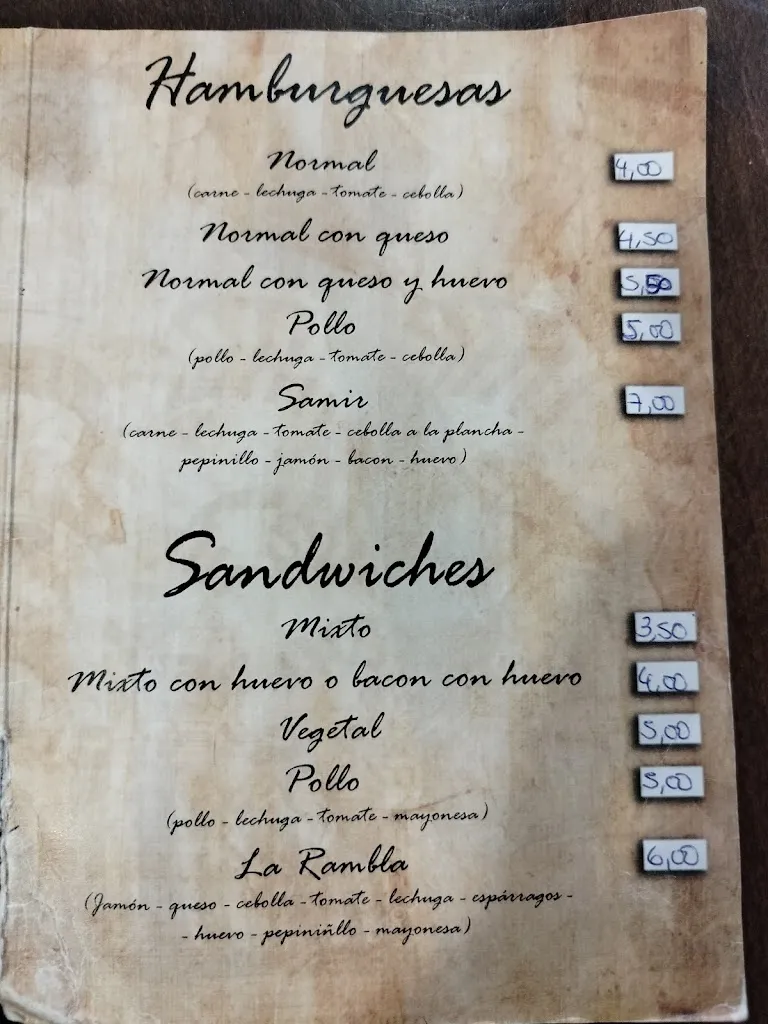 Hamburguesas
Normal 4,00
(carne - lechuga - tomate - cebolla)
Normal con queso 4,50
Normal con queso y huevo 5,50
Pollo 5,00
(pollo - lechuga - tomate - cebolla)
Samir 7,00
(carne - lechuga - tomate - cebolla a la plancha -
pepinillo - jamón - bacon - huevo)
Sandwiches
Mixto 3,50
Mixto con huevo o bacon con huevo 4,00
Vegetal 5,00
Pollo 5,00
(pollo - lechuga - tomate - mayonesa)
La Rambla 6,00
(Jamón - queso - cebolla - tomate - lechuga - espárragos -
- huevo - pepiniñllo - mayonesa)